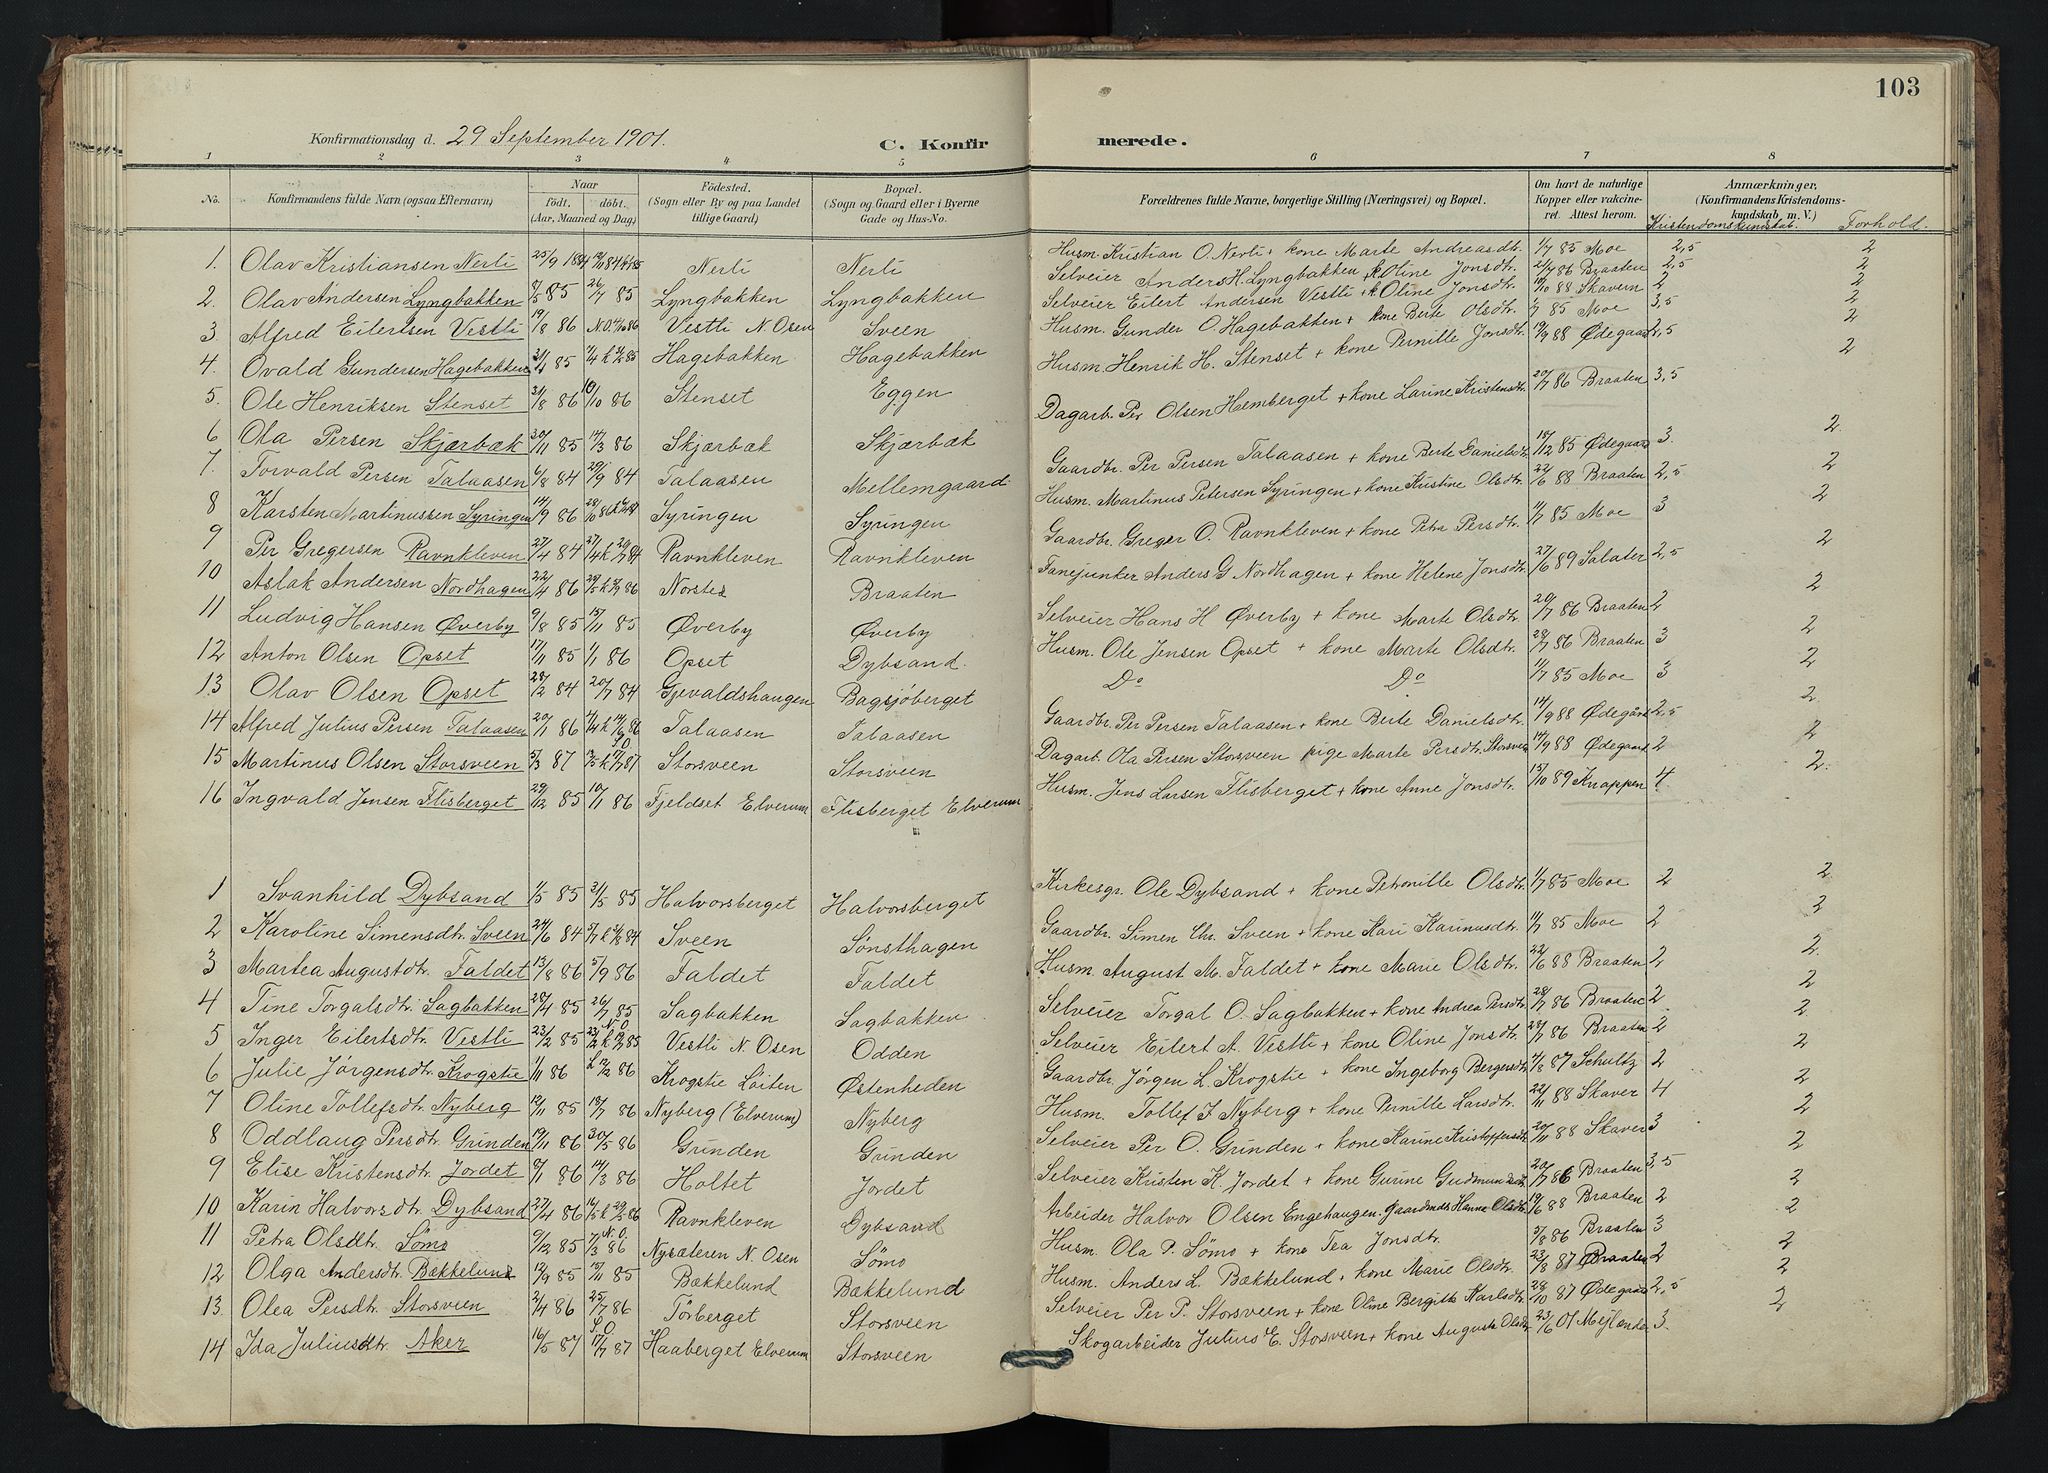 103
Konfirmationsdag d. 29 September 1901.
C. Konfirmerede.
1 2 3 4 5 6 7 8
No. Konfirmandens fulde Navn (ogsaa Efternavn) Naar født. døbt. (Aar, Maaned og Dag) Fødested. (Sogn eller By og paa Landet tillige Gaard) Bopæl. (Sogn og Gaard eller i Byerne Gade og Hus-No. Forældrenes fulde Navne, borgerlige Stilling (Næringsvei) og Bopæl. Om havt de naturlige Kopper eller vakcineret. Attest herom. Anmærkninger, (Konfirmandens Kristendomskundskab m. V.) Kristendomskundskab. Forhold.
1. Olav Kristiansen Nerli 25/9 1884 Nerli Nerli Husm. Kristian O. Nerli + kone Marte Andreasdtr. 1/7 85 Moe 2,5 2
2. Olav Andersen Lyngbakken 8/5 85 26/7 85 Lyngbakken Lyngbakken Selveier Anders H. Lyngbakken + k Oline Jonsdtr. 21/7 86 Braaten 2,5 2
3 Alfred Eilertsen Vestli 19/8 86 N.O. Vestli N. Osen Sveen Selveier Eilert Andersen Vestli + k Oline Jonsdtr. 88 Skavern 2 2
4. Ovald Gundersen Hagebakken 85 Hagebakken Hagebakken Husm. Gunder O. Hagebakken + kone Berte Olsdtr. 1/7 85 Moe 3,5 2
5. Ole Henriksen Stenset 31/8 86 10/10 86 Stenset Eggen Husm. Henrik H. Stenset + kone Pernille Jonsdtr. 19/9 88 Ødegaard 2,5 2
6 Ola Persen Skjærbæk 30/11 85 14/3 86 Skjærbæk Skjærbæk Dagarb. Per Olsen Hemberget + kone Larine Kristensdtr. 20/7 86 Braaten 3,5 2
7. Torvald Persen Talaasen 6/8 84 29/9 84 Talaasen Mellemgaard. Gaardbr. Per Persen Talaasen + kone Berte Danielsdtr. 15/12 85 Ødegaard 3. 2
8 Karsten Martinussen Syringen 14/9 86 Syringen Syringen Husm. Martinus Petersen Syringen + kone Kristine Olsdtr. 22/6 88 Braaten 2,5 2
9 Per Gregersen Ravnkleven 27/4 84 Ravnkleven Ravnkleven Gaardbr. Greger O. Ravnkleven + kone Petra Persdtr. 11/7 85 Moe 3 2
10 Aslak Andersen Nordhagen 22/4 86 Norster Braaten Fanejunker Anders G Nordhagen + kone Helene Jonsdtr. 27/6 89 Salater 2,5 2
11 Ludvig Hansen Øverby 9/8 85 15/11 85 Øverby Øverby Selveier Hans H Øverby + kone Marte Olsdtr. 20/7 86 Braaten 2 2
12 Anton Olsen Opset 17/11 85 1/1 86 Opset Dybsand. Husm. Ole Jensen Opset + kone Marte Olsdtr. 28/7 86 Braaten 3 2
13 Olav Olsen Opset 28/2 84 20/7 84 Gjevaldshaugen Bagsjøberget Do Do 11/7 85 Moe 3 2
14 Alfred Julius Persen Talaasen 20/1 86 Talaasen Talaasen Gaardbr. Per Persen Talaasen + kone Berte Danielsdtr. 14/9 88 Ødegård 2,5 2
15 Martinus Olsen Storsveen 5/3 87 Storsveen Storsveen Dagarb. Ola Persen Storsveen pige Marte Persdtr. Storsveen 14/9 88 Ødegaard 2 2
16 Ingvald Jensen Flisberget 29/12 85 10/11 86 Fjeldset Elverum Flisberget Elverum Husm. Jens Larsen Flisberget + kone Anne Jonsdtr. 15/10 89 Knappen 4 2.
1 Svanhild Dybsand 1/5 85 31/5 85 Halvorsberget Halvorsberget Kirkesgr. Ole Dybsand + kone Petronille Olsdtr. 1/7 85 Moe 2 2
2 Karoline Simensdtr. Sveen 24/6 84 Sveen Sønsthagen Gaardbr. Simen Chr. Sveen + kone Kari Karinusdtr. 11/7 85 Moe 2 2
3 Martea Augustdtr. Faldet 13/8 86 5/9 86 Faldet Faldet Husm. August M. Faldet + kone Marie Olsdtr. 22/6 88 Braaten 2 2.
4 Tine Torgalsdtr. Sagbakken 28/4 85 26/7 85 Sagbakken Sagbakken Selveier Torgal O. Sagbakken + kone Andrea Persdtr. 28/7 86 Braaten 2 2
5 Inger Eilertsdtr. Vestli 23/2 85 N.O. Vestli N. Osen Odden Selveier Eilert A. Vestli + kone Oline Jonsdtr. 28/7 86 Braaten 2 2.
6 Julie Jørgensdtr. Krogstie 1/11 86 L 12/2 86 Krogstie Löiten Østenheden Gaardbr. Jørgen L. Krogstie + kone Ingeborg Bergersdtr. 4/8 87 Schultz 2 2
7 Oline Tollefsdtr. Nyberg 12/11 85 18/7 86 Nyberg (Elverum) Nyberg Husm. Tollef J Nyberg + kone Pernille Larsdtr. 22/11 88 Skaver 4 2
8 Oddlaug Persdtr. Grinden 19/11 86 30/5 86 Grinden Grinden Selveier Per O. Grinden + kone Karine Kristoffersdtr. 20/11 88 Skaver 3 2
9 Elise Kristensdtr. Jordet 8/1 86 14/3 86 Holtet Jordet Selveier Kristen K. Jordet + kone Gurine Gudmundsdtr. 20/7 86 Braaten 3,5 2
10 Karin Halvorsdtr. Dybsand 27/4 86 Ravnkleven Dybsand Arbeider Halvor Olsen Engehaugen. Gaardmds Hanna Olsdtr. 19/6 88 Braaten 2 2
11 Petra Olsdtr. Sömo 9/12 85 N.O. 7/3 86 Nysæteren N. Osen Sömo Husm. Ola P. Sömo + kone Tea Jonsdtr. 5/8 86 Braaten 3 2
12 Olga Andersdtr. Bækkelund 12/9 85 15/11 85 Bækkelund Bækkelund Husm. Anders L. Bækkelund + kone Marie Olsdtr. 23/8 87 Braaten 2 2
13. Olea Persdtr. Storsveen 2/4 86 25/7 86 Törberget Storsveen Selveier Per P. Storsveen + kone Oline Bergitte Karlsdtr. 28/10 87 Ødegaard 2,5 2
14 Ida Juliusdtr. Aker 16/5 87 17/7 87 Haaberget Elverum Storsveen Skogarbeider Julius E. Storsveen + kone Auguste Olsdtr. 23/6 01 Mejlænder 3. 2